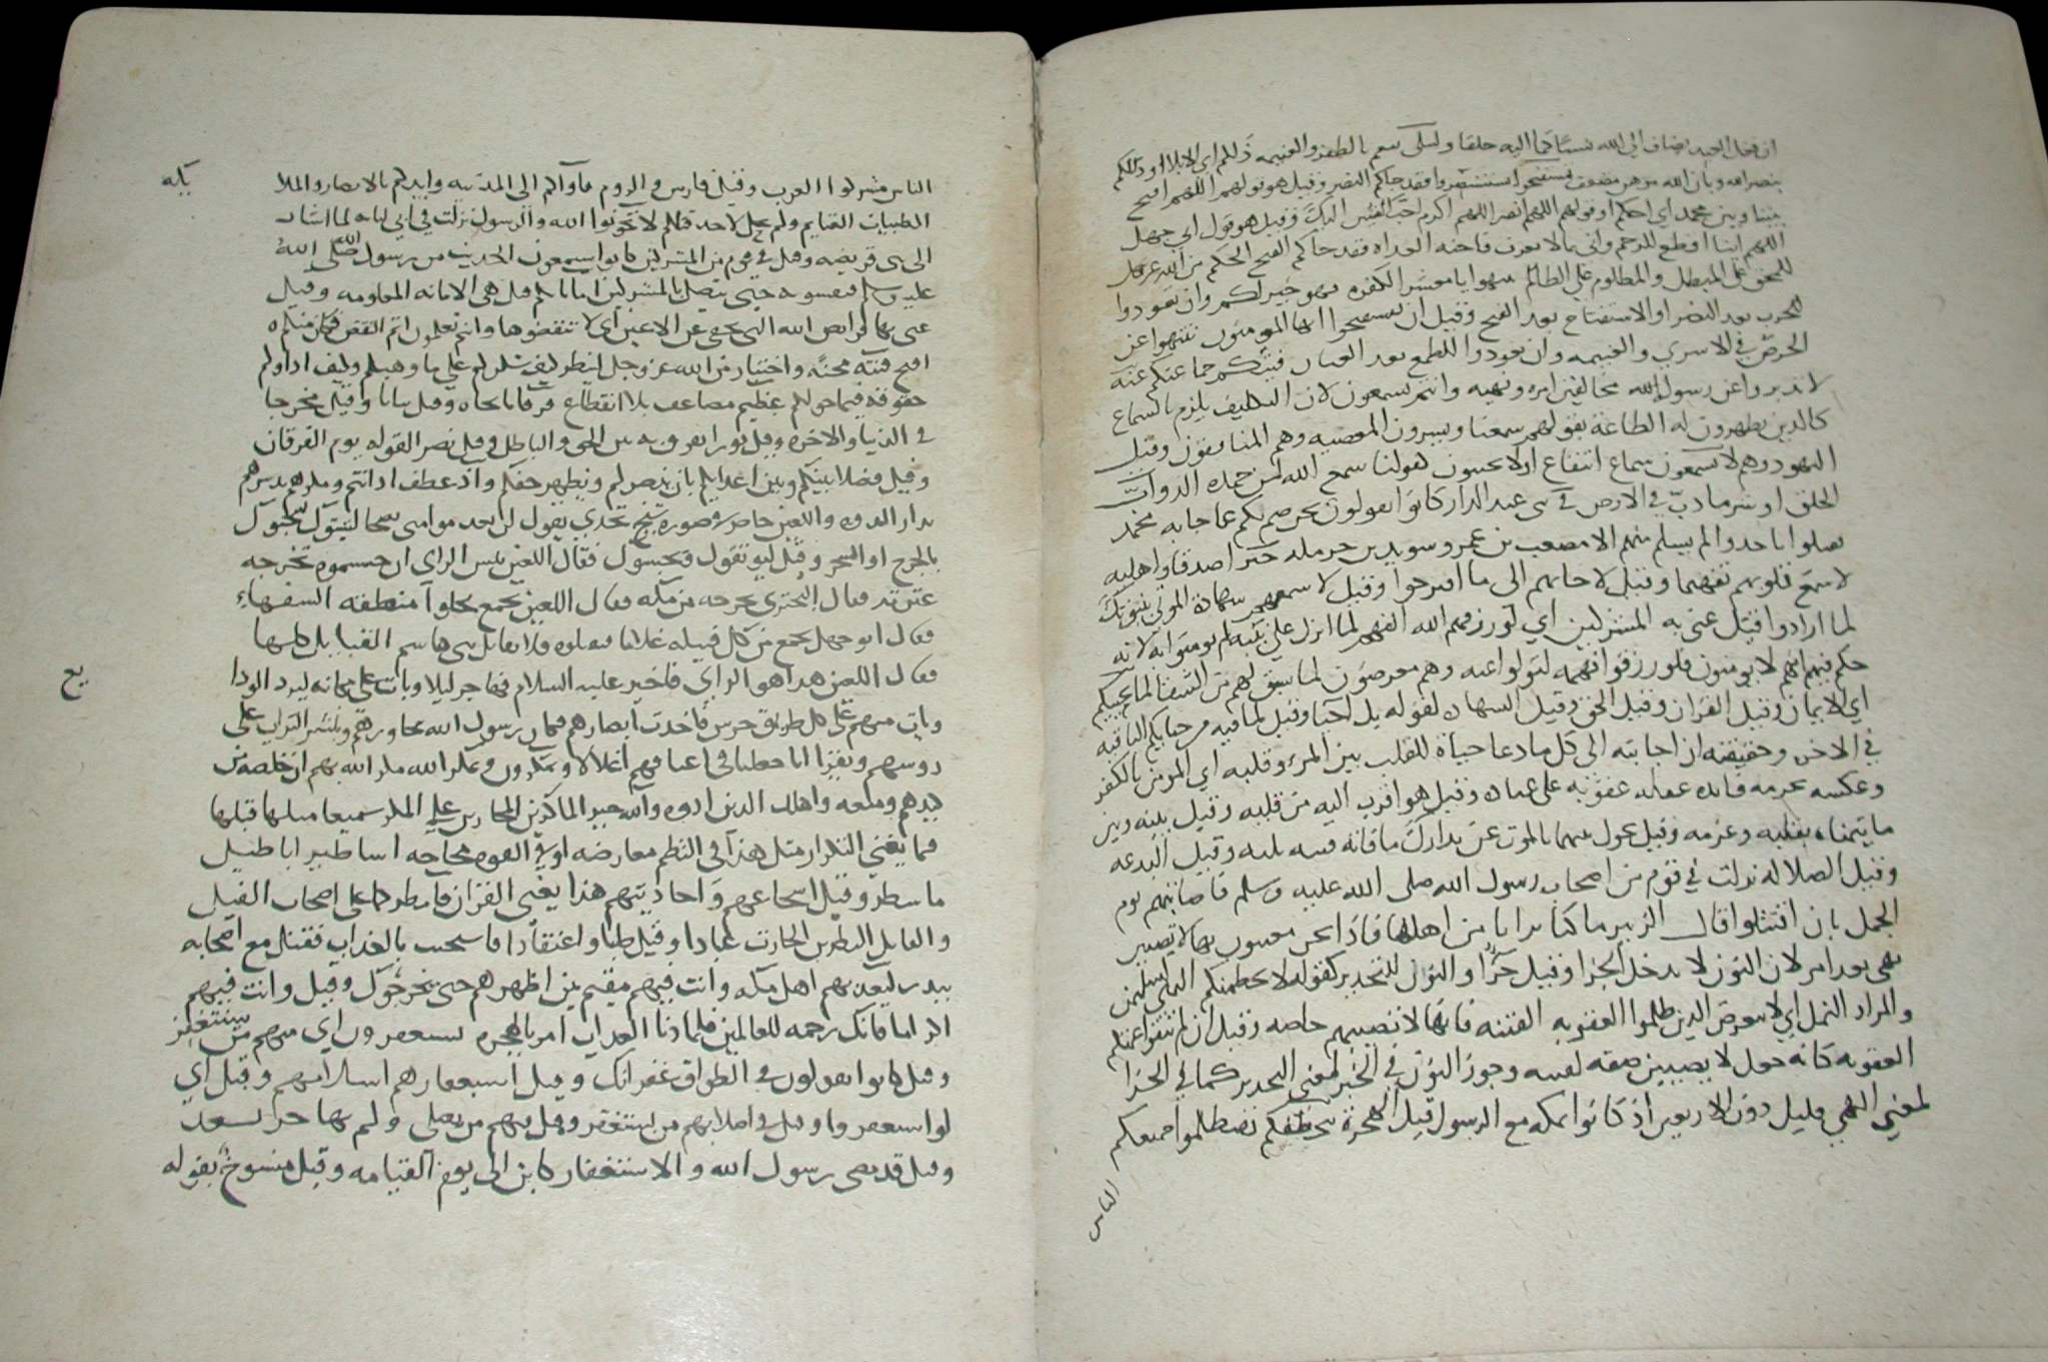 ان فعل العبد يضاف الى الله كسبا كما اليه خلقا وليبلى ينعم بالظفر والغنيمه ذلكم اى الابلا او ذلكم
بنصر الله وبان الله موهن مضعف تستفتحوا تستنصروا فقد جاكم النصر وقيل هو قولهم اللهم افتح
بيننا وبين محمد اى احكم او قولهم اللهم انصر اللهم اكرم احب الفئتين اليك وقيل هو قول ابى جهل
اللهم اينا اقطع للرحم واتى بما لا يعرف فاحنه الغداه فقد جاكم الفتح الحكم من الله عز وجل
للمحق على المبطل والمظلوم على الظالم تنتهوا يا معشر الكفره فهو خير لكم وان تعودوا
للحرب بعد النصر او الاستفتاح بعد الفتح وقيل ان تستفتحوا ايها المومنون تنتهوا عن
الحرص فى الاسرى والغنيمه وان تعودوا للطمع بعد العتاب فيئتكم جماعتكم عنه
لا تدبروا عن رسول الله مخالفين امره ونهيه وانتم تسمعون لان التكليف يلزم بالسماع
كالذين يظهرون له الطاعة بقولهم سمعنا ويسرون المعصيه وهم المنافقون وقيل
اليهود وهم لا يسمعون سماع انتفاع او لا يجيبون كقولنا سمع الله لمن حمده الدواب
الخلق او شر ما دب فى الارض فى بنى عبد الدار كانوا يقولون نحن صم بكم عما جا به محمد
فقتلوا باحد ولم يسلم منهم الا مصعب بن عمير وسويد بن حرمله خيرا صدقا واهليه
لاسمع قلوبهم تفهما وقيل لاجابهم الى ما اقترحوا وقيل لاسمعهم شهادة الموتى بنبوتك
لما ارادوا قيل عنى به المشركين اى لو رزقهم الله الفهم لما انزل على نبيه لم يومنوا به لانه
حكم فيهم انهم لا يومنون فلو رزقوا فهمه لتولوا عنه وهم معرضون لما سبق لهم من الشقا لما يحييكم
اى الايمان وقيل القران وقيل الحق وقيل الشهاده لقوله بل احيا وقيل لما فيه من حياتكم الباقيه
فى الاخره وحقيقته ان اجابته الى كل ما دعا حياة للقلب بين المرء وقلبه اى المومن بالكفر
وعكسه يحرمه فايده عقله عقوبه على عناده وقيل هو اقرب اليه من قلبه وقيل بينه وبين
ما يتمناه بقلبه وعزمه وقيل يحول بينهما بالموت عن تدارك ما فاته فتنه بليه وقيل البدعه
وقيل الضلاله نزلت فى قوم من اصحاب رسول الله صلى الله عليه وسلم فاصابتهم يوم
الجمل بان اقتتلوا قال الزبير ما كنا نرانا من اهلها فاذا نحن معنيون بها لا تصيبن
نهى بعد امر لان النون لا تدخل الجزا وقيل جزا والنون للتحذير كقوله لا يحطمنكم
والمراد النمل اى لا تعرض الذين ظلموا العقوبه الفتنه فانها لا تصيبهم خاصه وقيل ان لم تتقوا عمتكم
العقوبه كانه حول لا يصيبن صفه لفتنه وجوز النون فى الخبر لمعنى التحذير كما فى الجزا
لمعنى النهى قليل دون الاربعين اذ كانوا بمكه مع الرسول قبل الهجرة يتخطفكم تضطلموا اجمعكم
الناس
الناس مشركوا العرب وقيل فارس والروم فآواكم الى المدينه وايدكم بالانصار والملا
الطيبات الغنايم ولم تحل لاحد قبلكم لا تخونوا الله والرسول نزلت فى ابى لبابه لما اشار
الى بنى قريضه وقيل فى قوم من المشركين كانوا يسمعون الحديث من رسول الله صلى الله
عليه وسلم فيفشونه حتى يتصل بالمشركين اماناتكم قيل هى الامانه المعلومه وقيل
عنى بها فرايض الله التى تخفى عن الاعين اى لا تنقضوها وانتم تعلمون اثم النقض
اقبح فتنة محنة واختبار من الله عز وجل لينظر كيف شكركم على ما وهبكم وكيف اداوكم
حقوقه فيما خولكم عظيم مضاعف بلا انقطاع فرقانا نجاه وقيل بيانا وقيل مخرجا
فى الدنيا والاخره وقيل نورا يفرق به بين الحق والباطل وقيل نصر القوله يوم الفرقان
وقيل فضلا بينكم وبين اعدايكم بان ينصركم ويظهر حقكم واذ عطف اذ انتم ومكرهم تدبيرهم
بدار الندوه واللعين حاضر فى صوره شيخ نجدى يقول ليثبتوك يسجنوك
بالجرح او السحر وقيل فقال اللعين بيس الراى ان حبستموه تخرجه
عترته فقال البخترى نخرجه من مكه فقال اللعين يجمع بحلو منطقه السفهاء
فقال ابو جهل يجمع من كل قبيله غلاما فيقتلوه فلا يقابل بنى هاشم القبايل كلها
فقال اللعين هذا هو الراى فاخبر عليه السلام فهاجر ليلا وبات على مكانه ليرد الودا
وبات منهم على كل طريق حرس فاخذت ابصارهم فكان رسول الله يجاورهم وينثر التراب على
روسهم ويقرا انا جعلنا فى اعناقهم اغلالا ويمكرون ويمكر الله مكر الله بهم ان خلصه من
كيدهم ومنعه واهلك الذين ارادوه والله خير الماكرين المجازين على المكر سمعنا مثلها قبلها
فما يغنى التكرار مثل هذا فى النظم معارضه او فى القوه محاجه اساطير اباطيل
ما سطر وقيل اسجاعهم واحاديثهم هذا يعنى القران فامطر كما على اصحاب الفيل
والقايل النظر بن الحارث عنادا وقيل ظنا واعتقادا فاستجيب بالعذاب فقتل مع اصحابه
ببدر ليعذبهم اهل مكه وانت فيهم مقيم بين اظهرهم حتى يخرجوك وقيل وانت فيهم
اكراما فانك رحمه للعالمين فلما دنا العذاب امر بالهجره يستغفرون اى منهم من يستغفر
وقيل كانوا يقولون فى الطواف غفرانك وقيل استغفارهم اسلامهم وقيل اى
لو استغفروا وقيل فى اصلابهم من يستغفر وقيل فيهم من يصلى ولم بها
وقيل قد مضى رسول الله والاستغفار كاين الى يوم القيامه وقيل منسوخ بقوله